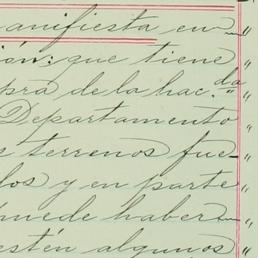 anifiesta en-
ión: que tiene
pra de la hac.da
Departamento
e terrenos fue-
los y en parte
puede haber-
estén algunos